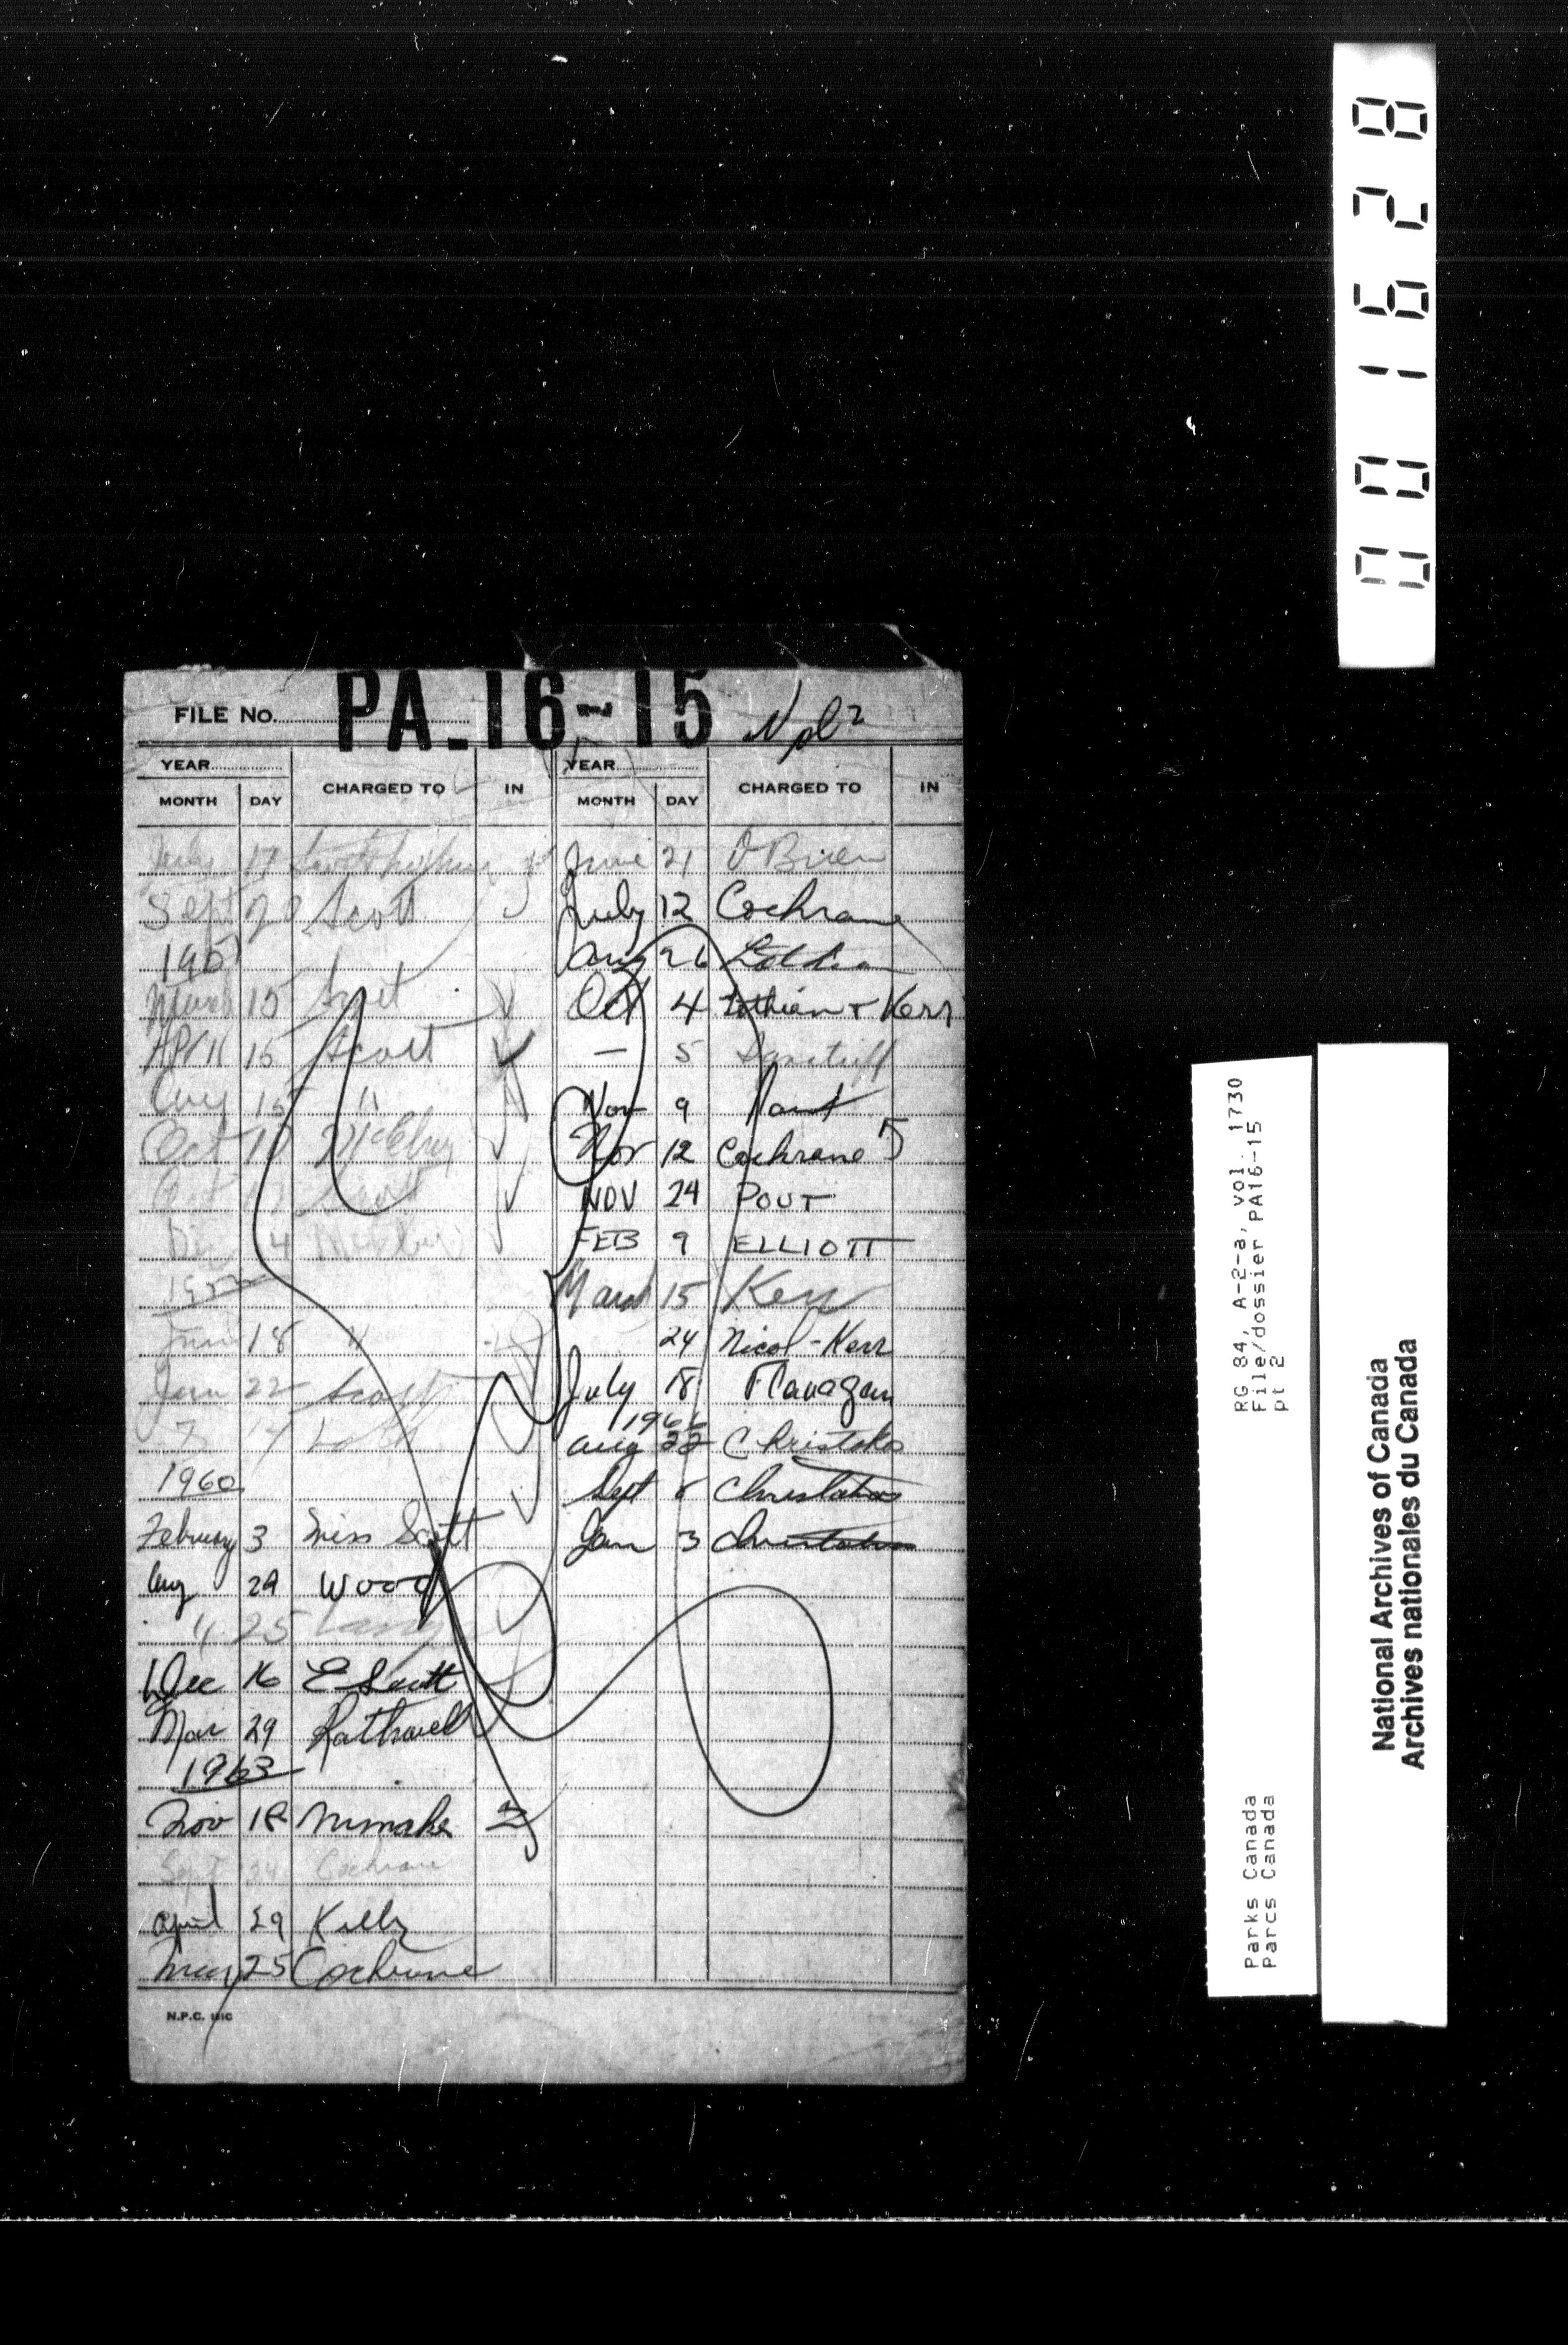 001628
FILE No. PA-16-15 Vol 2
YEAR
MONTH DAY CHARGED TO IN
July 17
Sept 20 Scott
March 15 Scott
APRIL 15 Scott
Aug 15 "
Oct
4
18 "
Jan 22 Scott
1960
February 3 Miss Scott
Aug 29 Wood
" 25
Dec 16 E Scott
Mar 29 Rathwell
1963
Nov 18
Sept 24 Cochrane
April 29 Kelly
May 25 Cochrane
N.P.C.
YEAR
MONTH DAY CHARGED TO IN
June 21 O'Brien
July 12 Cochrane
Aug 26 Lothian
Oct 4 Lothian + Kerr
— 5
Nov 9
Nov 12 Cochrane
NOV 24 POUT
FEB 9 ELLIOTT
March 15 Kerr
24 Nicol-Kerr
July 18 Flanagan
1966
Aug 22 Christakos
Sept 8 Christakos
Jan 3 Christakos
RG 84, A-2-a, vol. 1730
File/dossier PA16-15
pt 2
Parks Canada
Parcs Canada
National Archives of Canada
Archives nationales du Canada